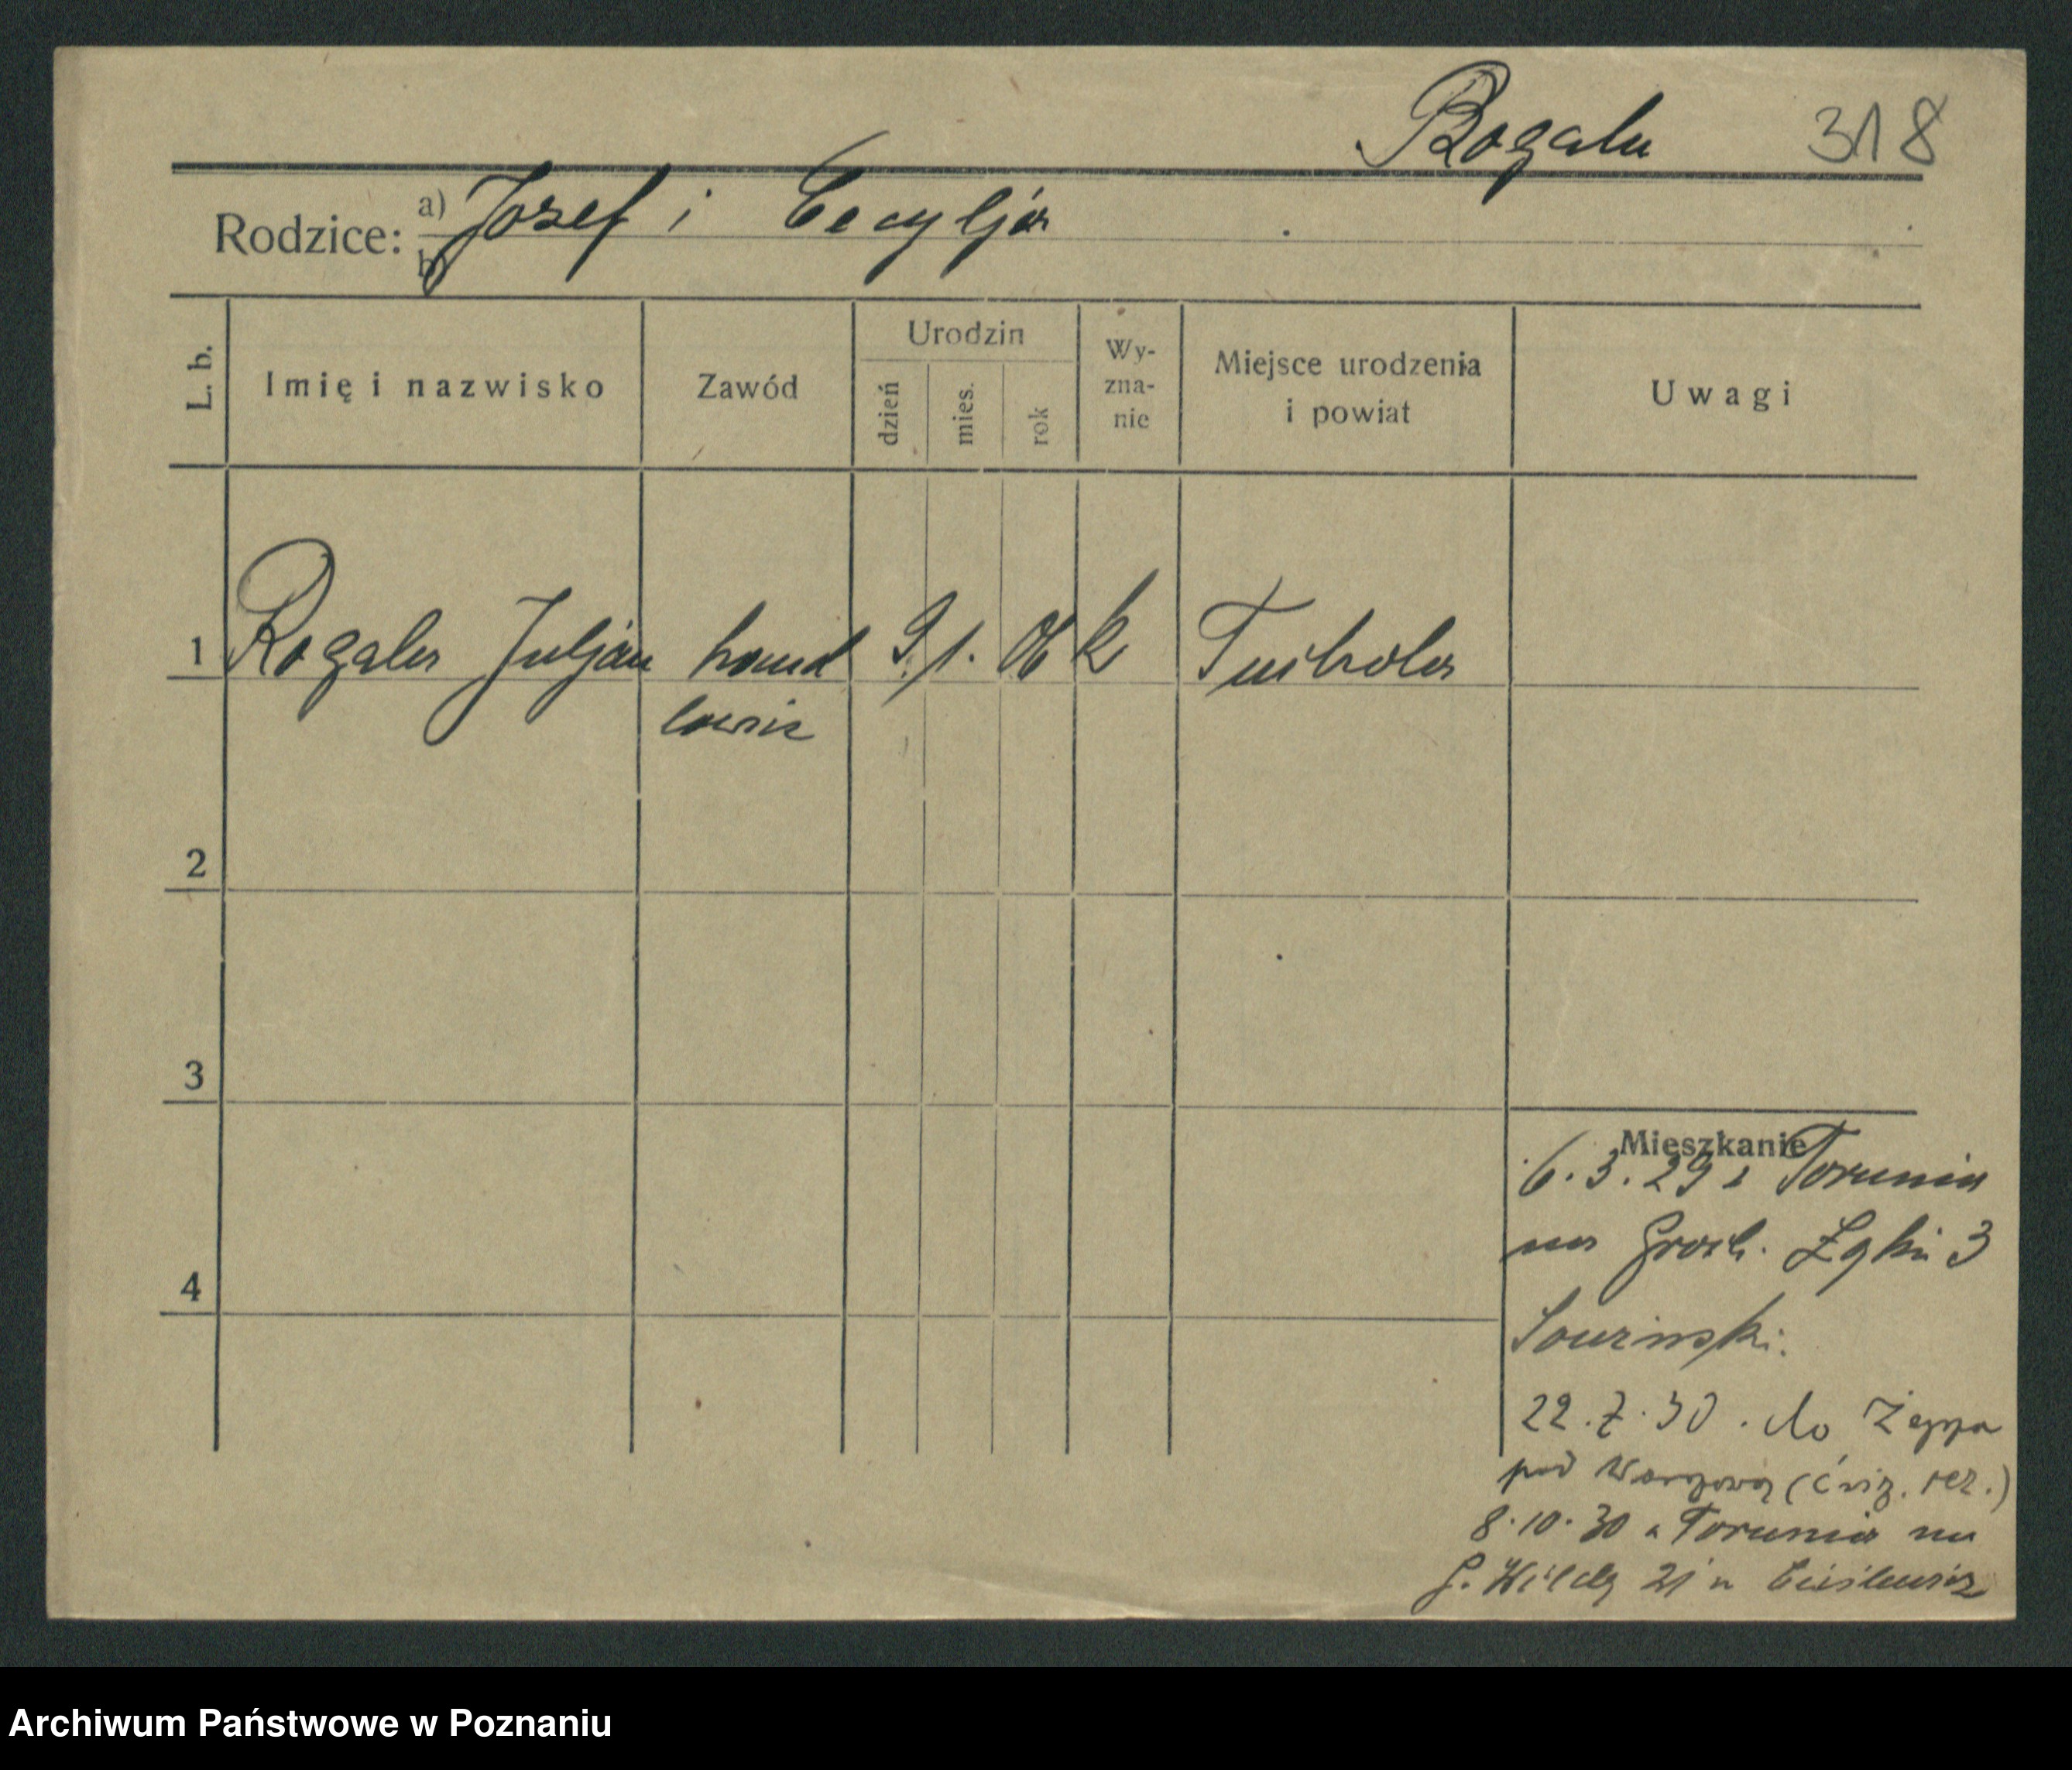 Rogala 318
Rodzice: a) Josef i Cecylja
b)
L. b.
Imię i nazwisko
Zawód
Urodzin
dzień
mies.
rok
Wy-
zna-
nie
Miejsce urodzenia
i powiat
Uwagi
1 Rogala Juljan hand 9. 1. 06 k Tuchola
lowiec
2
3
4
Mieszkanie
6.3.29 z Torunia
na Groch. Łąki 3
22.7.30. do Zegrza
pod Warszawą (ćwicz. rez.)
8.10.30 z Torunia na
G. Wildę 21 u
Archiwum Państwowe w Poznaniu